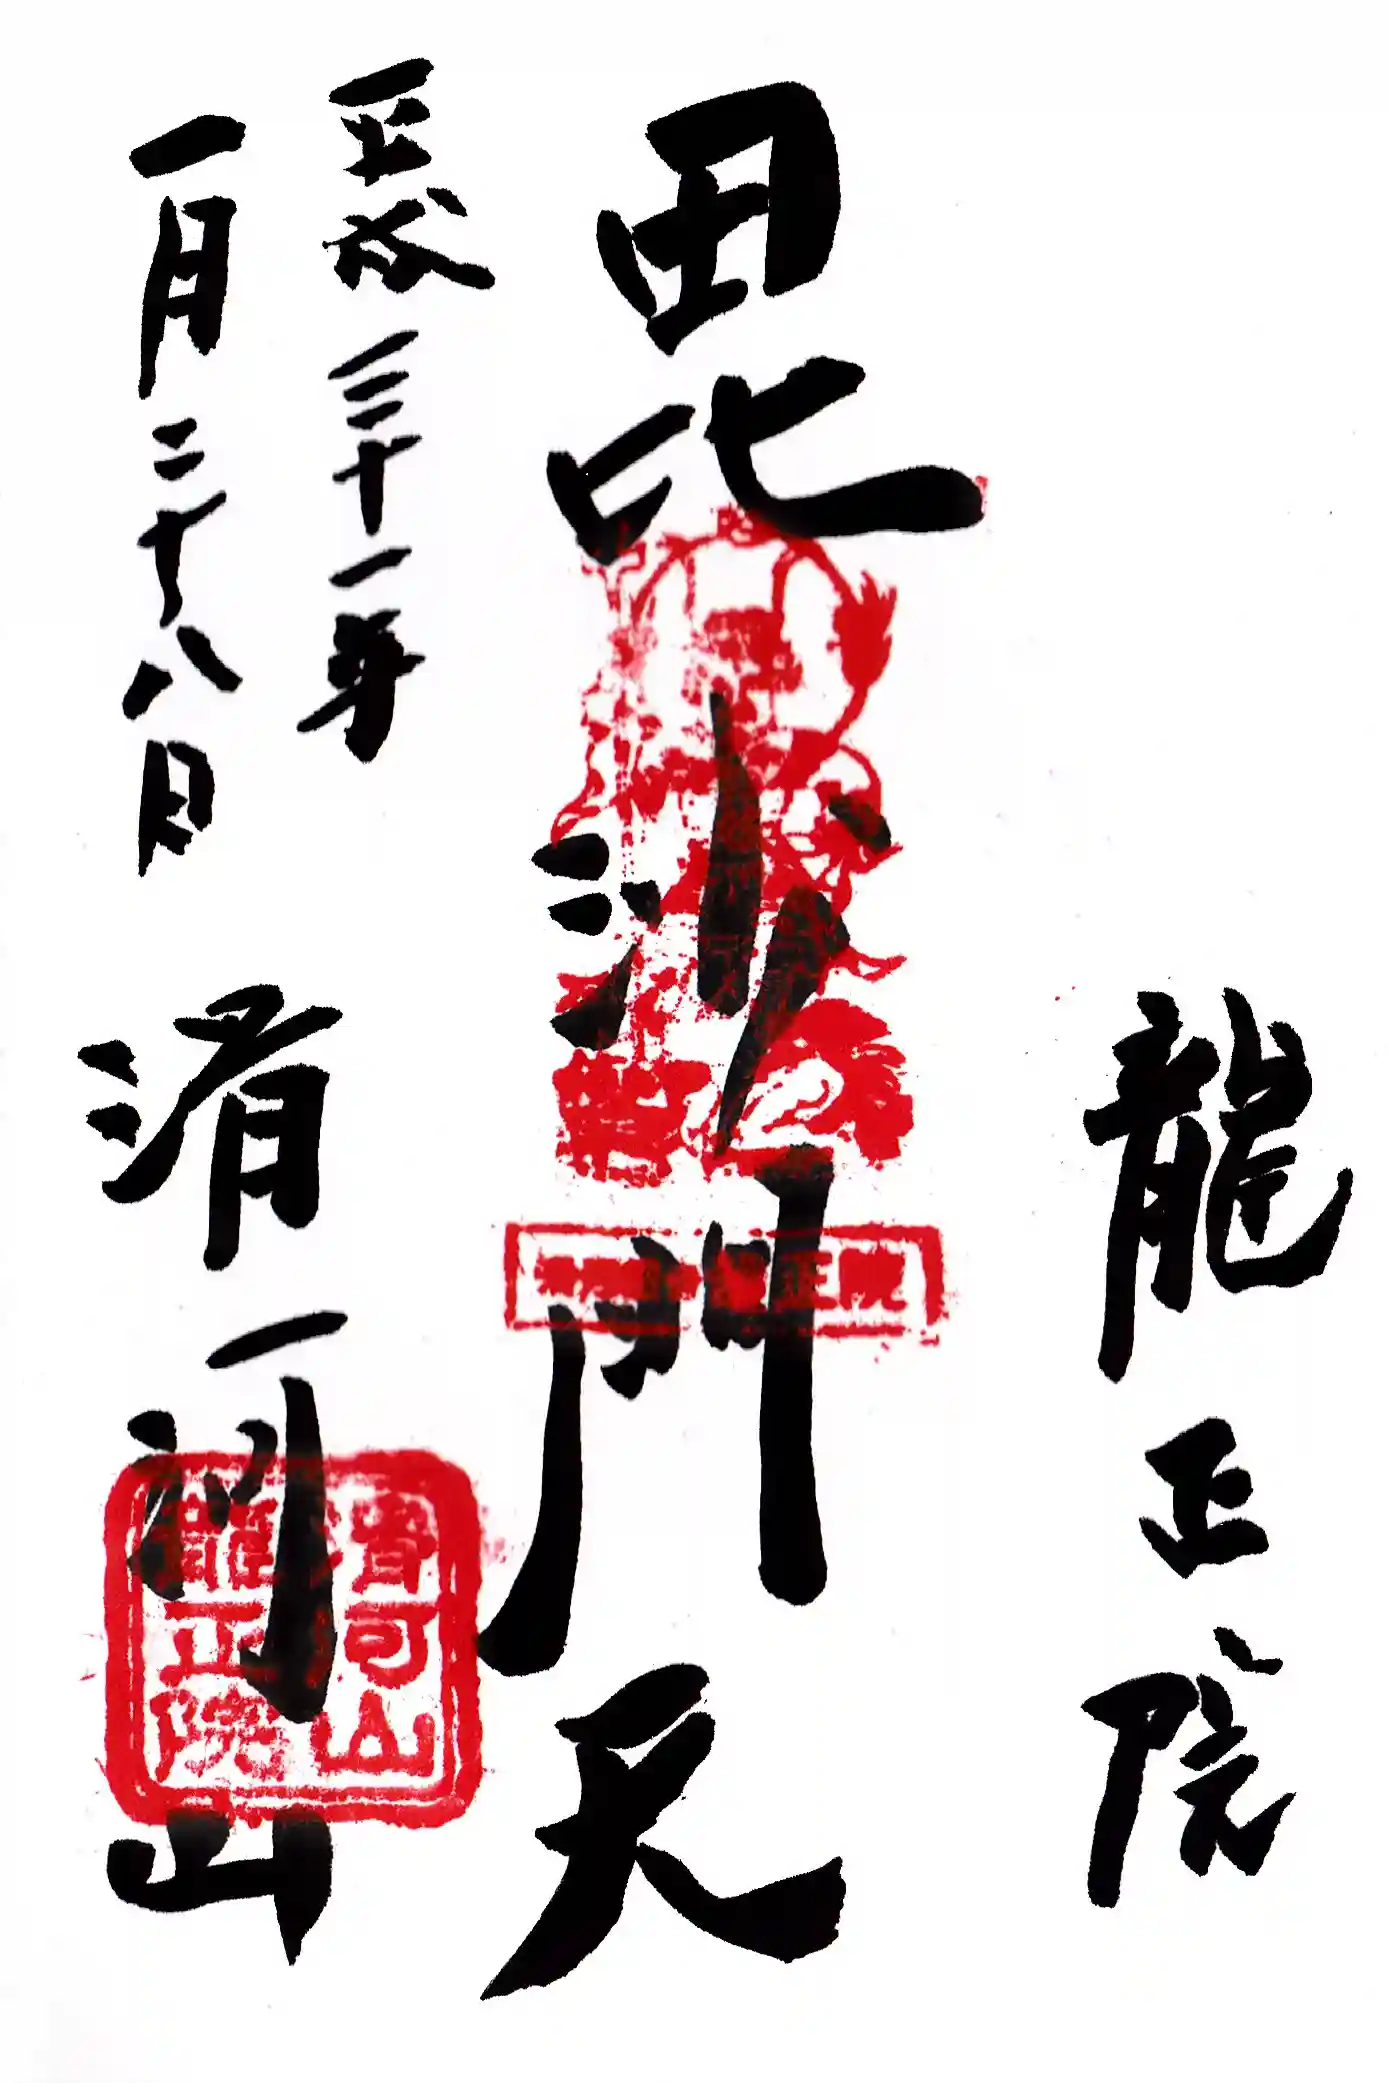 龍正院
毘沙門天
平成三十一年
一月二十八日
滑河山
滑河山
龍正院